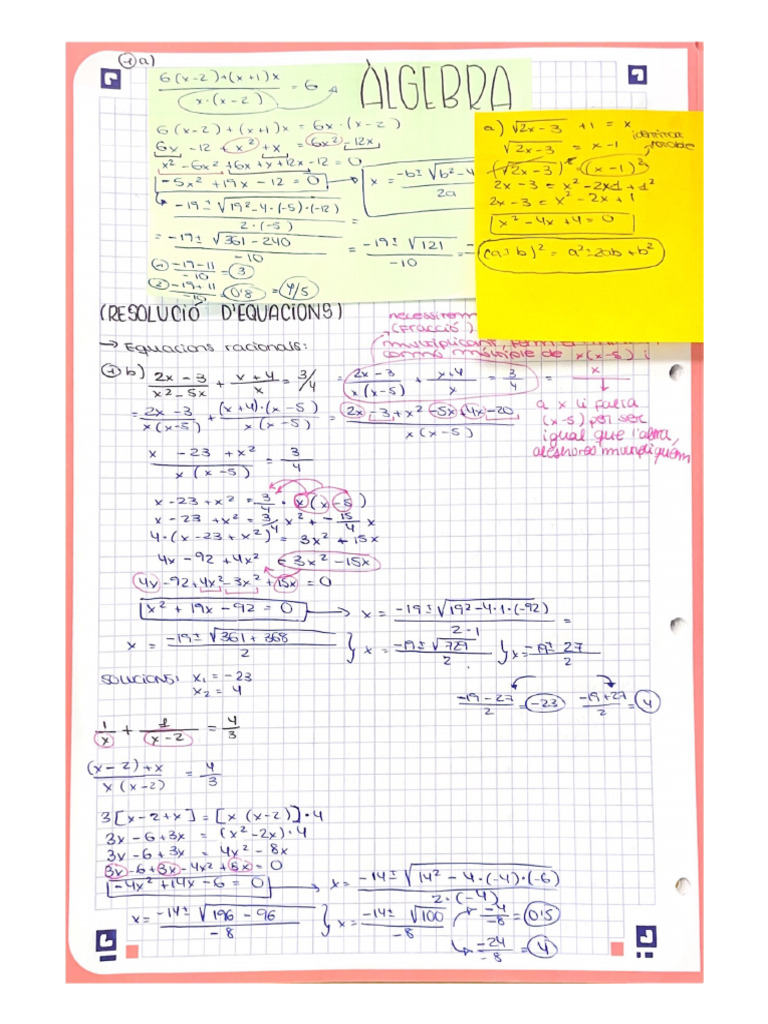 1 a)
ÀLGEBRA
6(x-2)+(x+1)x / x·(x-2) = 6
6(x-2) + (x+1)x = 6x·(x-2)
6x - 12 + x² + x = 6x² - 12x
x² - 6x² + 6x + x + 12x - 12 = 0
-5x² + 19x - 12 = 0
x = -b ± √b² - 4 / 2a
-19 ± √19² - 4·(-5)·(-12) / 2·(-5)
= -19 ± √361 - 240 / -10 = -19 ± √121 / -10 =
1 -19-11 / -10 = 3
2 -19+11 / -10 = 0'8 = 4/5
a) √2x-3 + 1 = x
√2x-3 = x-1
(√2x-3)² = (x-1)²
2x-3 = x² - 2x1 + 1²
2x-3 = x² - 2x + 1
x² - 4x + 4 = 0
(a ± b)² = a² ± 2ab + b²
(RESOLUCIÓ D'EQUACIONS)
→ Equacions racionals:
(fracció)
comú múltiple de x(x-5) i
x
1 b) 2x-3 / x²-5x + x+4 / x = 3/4 = 2x-3 / x(x-5) + x+4 / x = 3 / 4 =
a x li falta
(x-5) per ser
igual que l'altra,
aleshores multipliquem
= 2x-3 / x(x-5) + (x+4)·(x-5) / x(x-5) = 2x - 3 + x² - 5x + 4x - 20 / x(x-5)
x - 23 + x² / x(x-5) = 3 / 4
x - 23 + x² = 3/4 · x(x-5)
x - 23 + x² = 3/4 x² + - 15/4 x
4·(x - 23 + x²) = 3x² + 15x
4x - 92 + 4x² = 3x² - 15x
4x - 92 + 4x² - 3x² + 15x = 0
x² + 19x - 92 = 0 → x = -19 ± √19² - 4·1·(-92) / 2·1 =
x = -19 ± √361 + 368 / 2 } x = -19 ± √729 / 2 } x = -19 ± 27 / 2
SOLUCIONS: x₁ = -23
x₂ = 4
-19-27 / 2 = -23 -19+27 / 2 = 4
1 / x + 1 / x-2 = 4 / 3
(x-2)+x / x(x-2) = 4 / 3
3[x-2+x] = [x(x-2)]·4
3x - 6 + 3x = (x² - 2x)·4
3x - 6 + 3x = 4x² - 8x
3x - 6 + 3x - 4x² + 8x = 0
-4x² + 14x - 6 = 0 → x = -14 ± √14² - 4·(-4)·(-6) / 2·(-4)
x = -14 ± √196 - 96 / -8 } x = -14 ± √100 / -8 → -4 / -8 = 0'5
→ -24 / -8 = 4